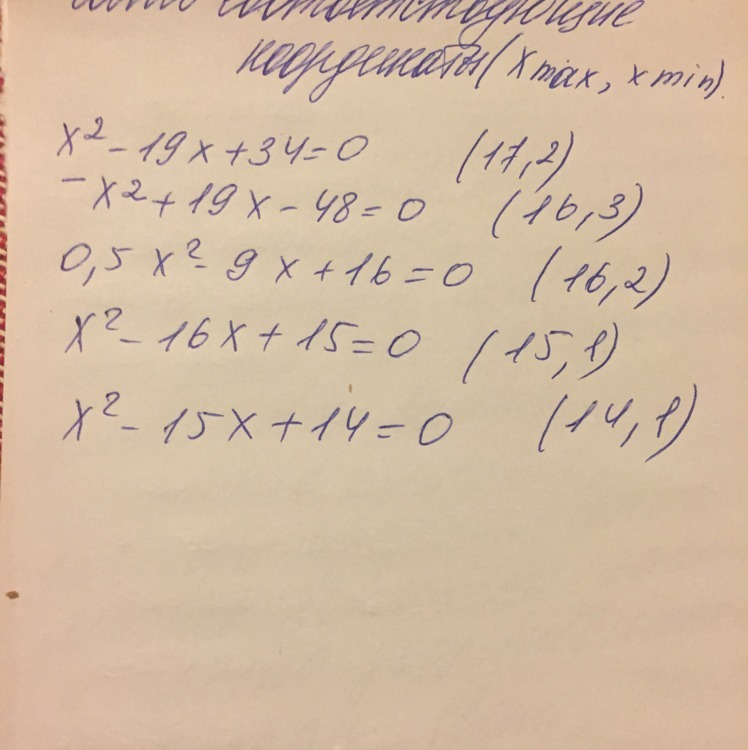 соответствующие
координаты (x max, x min).
x² - 19x + 34 = 0 (17,2)
-x² + 19x - 48 = 0 (16,3)
0,5x² - 9x + 16 = 0 (16,2)
x² - 16x + 15 = 0 (15,1)
x² - 15x + 14 = 0 (14,1)